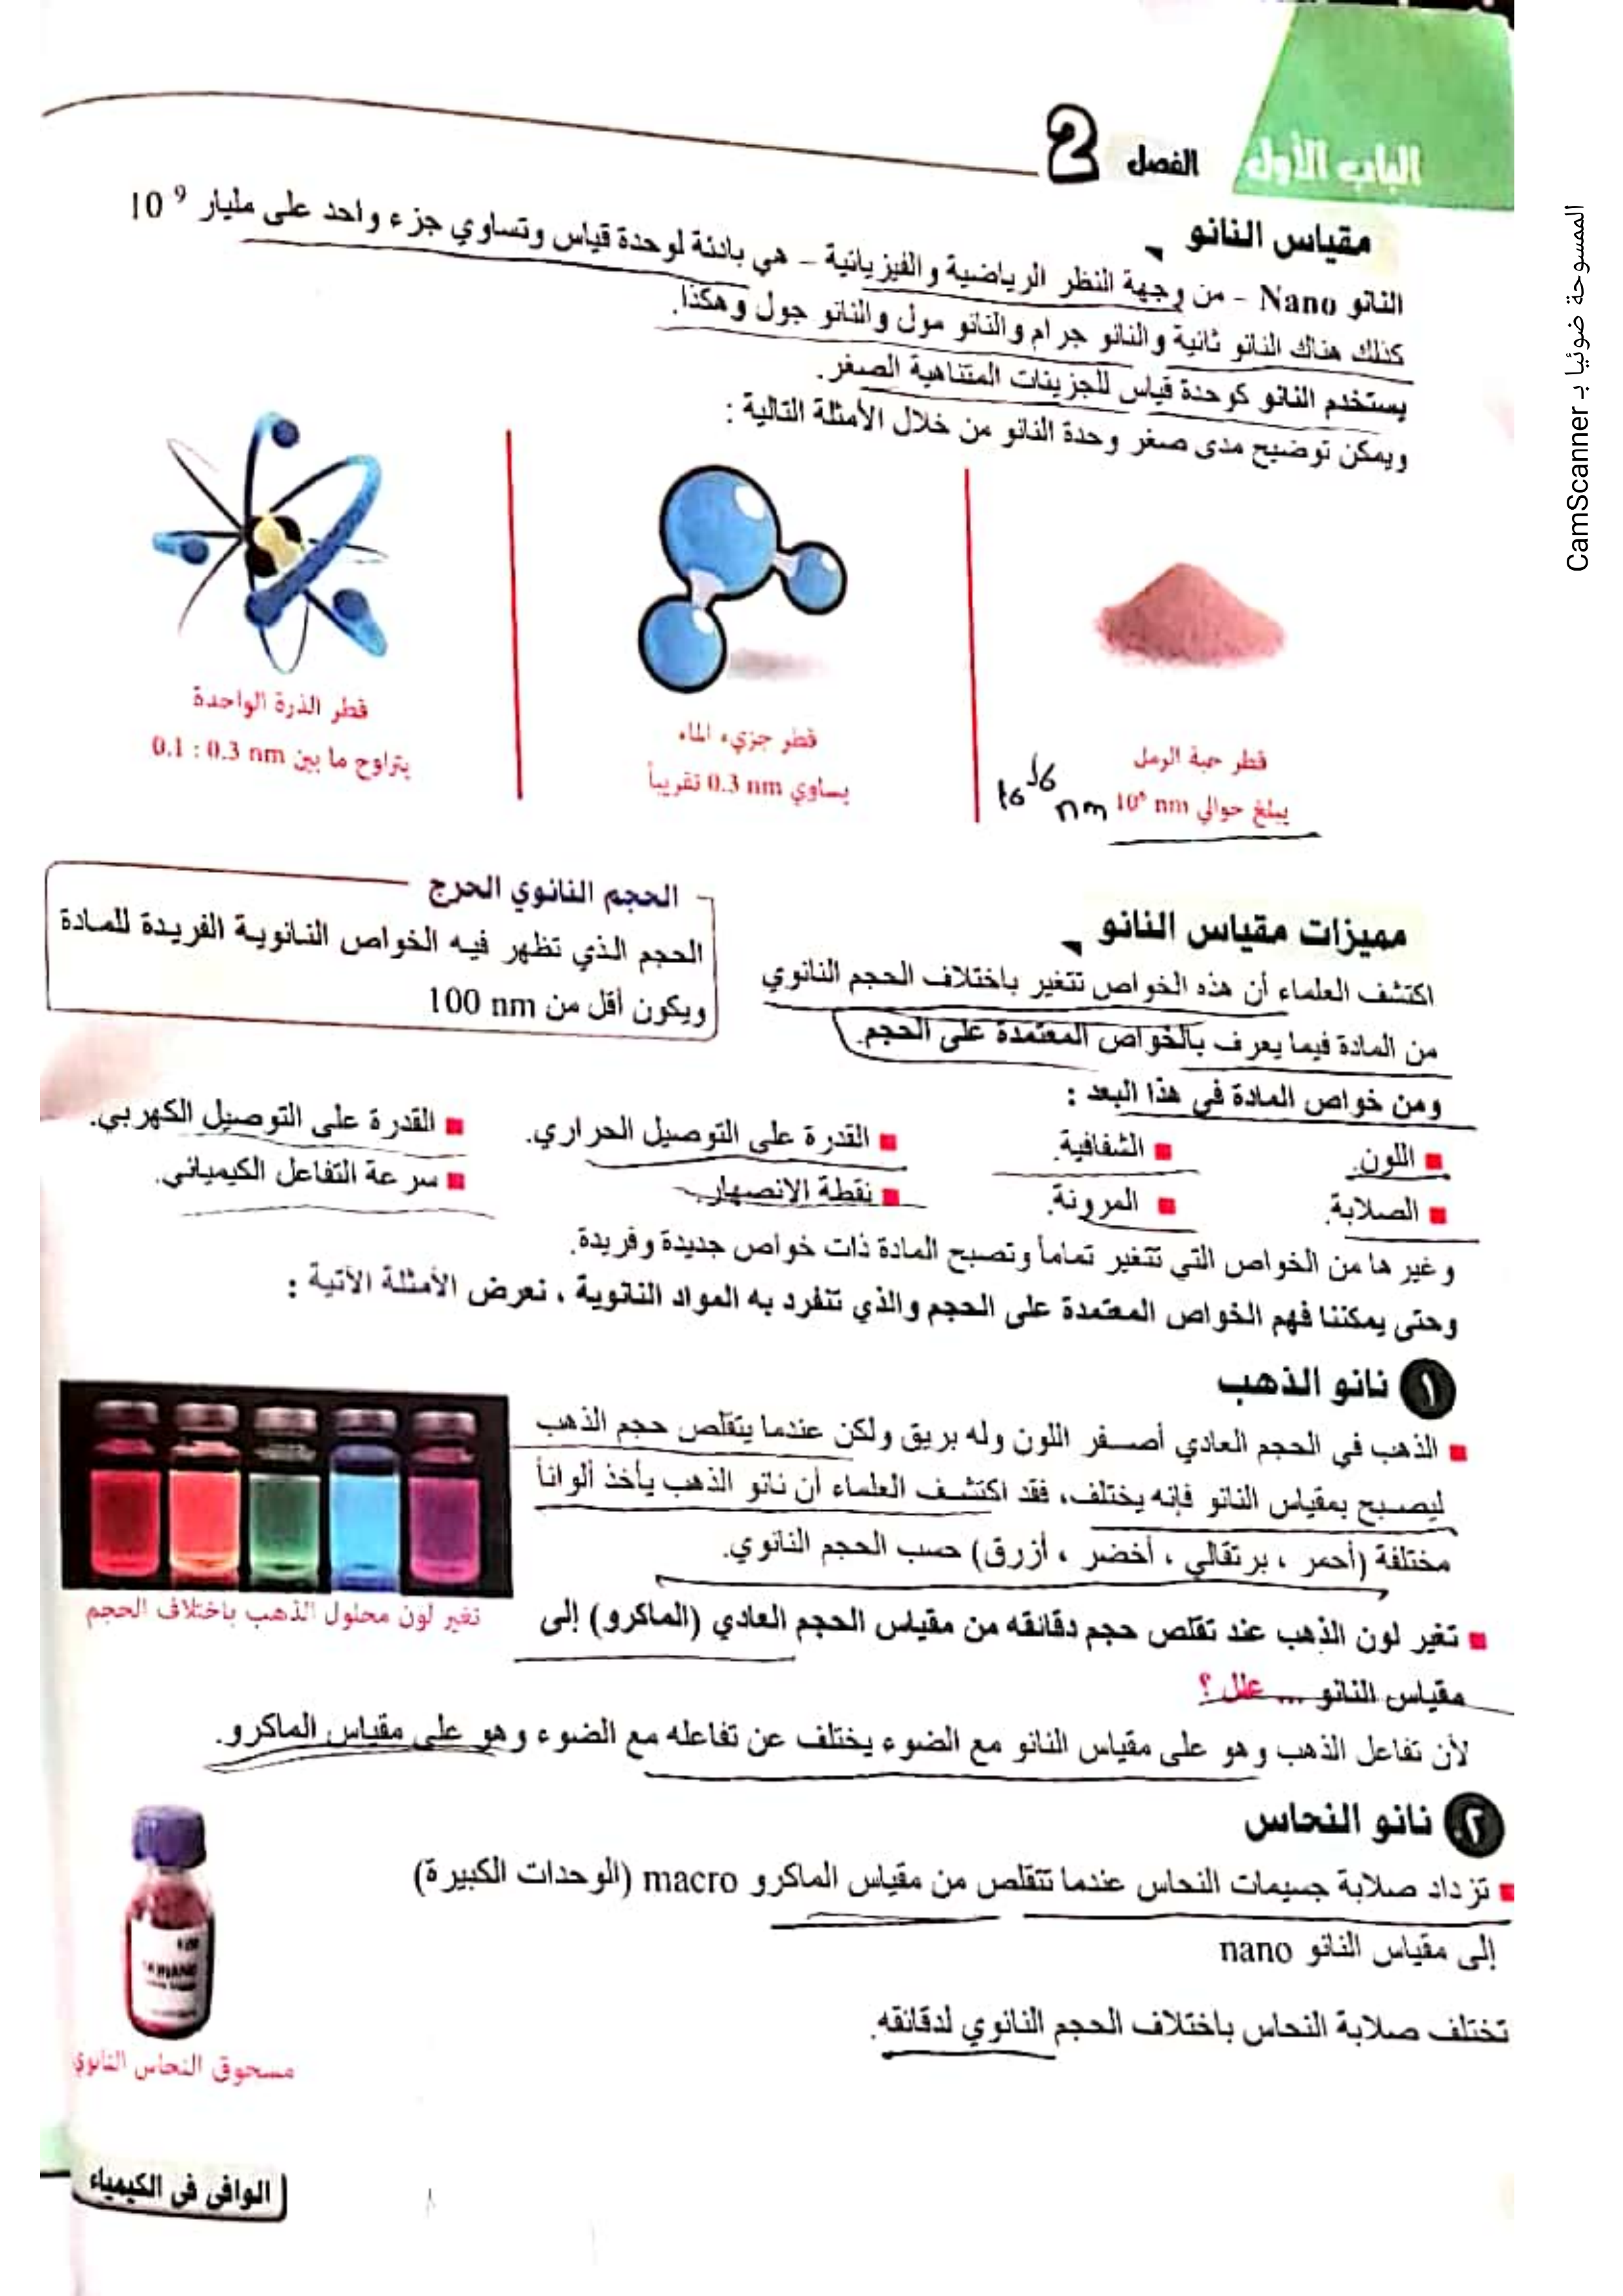 الباب الأول
الفصل 2
مقياس النانو
النانو Nano – من وجهة النظر الرياضية والفيزيائية – هي بادئة لوحدة قياس وتساوي جزء واحد على مليار 10⁹
كذلك هناك النانو ثانية والنانو جرام والنانو مول والنانو جول وهكذا.
يستخدم النانو كوحدة قياس للجزيئات المتناهية الصغر.
ويمكن توضيح مدى صغر وحدة النانو من خلال الأمثلة التالية :
قطر حبة الرمل
يبلغ حوالي 10⁶ nm
nm
قطر جزيء الماء
يساوي 0.3 nm تقريباً
قطر الذرة الواحدة
يتراوح ما بين 0.1 : 0.3 nm
مميزات مقياس النانو
اكتشف العلماء أن هذه الخواص تتغير باختلاف الحجم النانوي
من المادة فيما يعرف بالخواص المعتمدة على الحجم.
الحجم النانوي الحرج
الحجم الذي تظهر فيه الخواص النانوية الفريدة للمادة
ويكون أقل من 100 nm
ومن خواص المادة في هذا البعد :
■ اللون. ■ الشفافية. ■ القدرة على التوصيل الحراري. ■ القدرة على التوصيل الكهربي.
■ الصلابة. ■ المرونة. ■ نقطة الانصهار. ■ سرعة التفاعل الكيميائي.
وغيرها من الخواص التي تتغير تماماً وتصبح المادة ذات خواص جديدة وفريدة.
وحتى يمكننا فهم الخواص المعتمدة على الحجم والذي تنفرد به المواد النانوية ، نعرض الأمثلة الآتية :
١ نانو الذهب
■ الذهب في الحجم العادي أصفر اللون وله بريق ولكن عندما يتقلص حجم الذهب
ليصبح بمقياس النانو فإنه يختلف، فقد اكتشف العلماء أن نانو الذهب يأخذ ألواناً
مختلفة (أحمر ، برتقالي ، أخضر ، أزرق) حسب الحجم النانوي.
تغير لون محلول الذهب باختلاف الحجم
■ تغير لون الذهب عند تقلص حجم دقائقه من مقياس الحجم العادي (الماكرو) إلى
مقياس النانو ... علل ؟
لأن تفاعل الذهب وهو على مقياس النانو مع الضوء يختلف عن تفاعله مع الضوء وهو على مقياس الماكرو.
٢ نانو النحاس
■ تزداد صلابة جسيمات النحاس عندما تتقلص من مقياس الماكرو macro (الوحدات الكبيرة)
إلى مقياس النانو nano
تختلف صلابة النحاس باختلاف الحجم النانوي لدقائقه.
مسحوق النحاس النانوي
الوافي في الكيمياء
الممسوحة ضوئيا بـ CamScanner